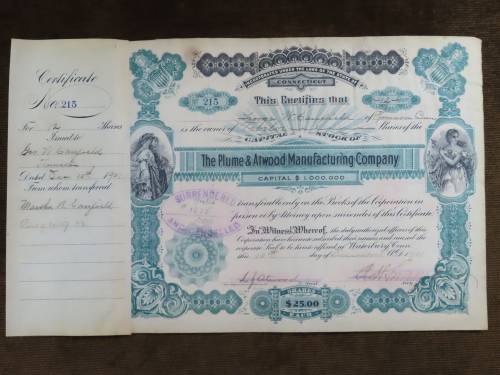 Certificate
No. 215
For 12 Shares
Issued to
Geo. W. Canfield
Dated Dec 18th 190
From whom transferred
Martha B. Canfield
INCORPORATED UNDER THE LAWS OF THE STATE OF
CONNECTICUT
215
This Certifies that
George W. Canfield of
is the owner of Twelve Shares of the
CAPITAL STOCK OF
The Plume & Atwood Manufacturing Company
CAPITAL $1,000,000
transferable only on the Books of the Corporation in
person or by Attorney upon surrender of this Certificate.
SURRENDERED
AND CANCELLED
In Witness Whereof, the duly authorized officers of this
Corporation have hereunto subscribed their names and caused the
corporate Seal to be hereto affixed at Waterbury Conn.
this 18th day of December A.D. 190
SHARES
$25.00
EACH